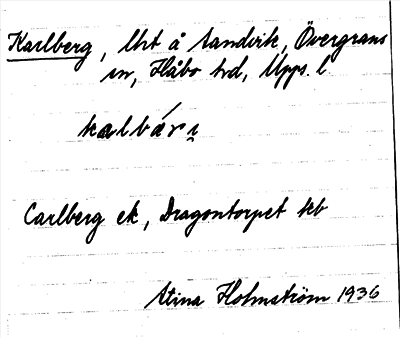 Karlberg, lht å Sandvik, Övergrans
sn, Håbo hd, Upps. l
kalbári̯
Carlberg ek, Dragontorpet kb
Stina Holmström 1936